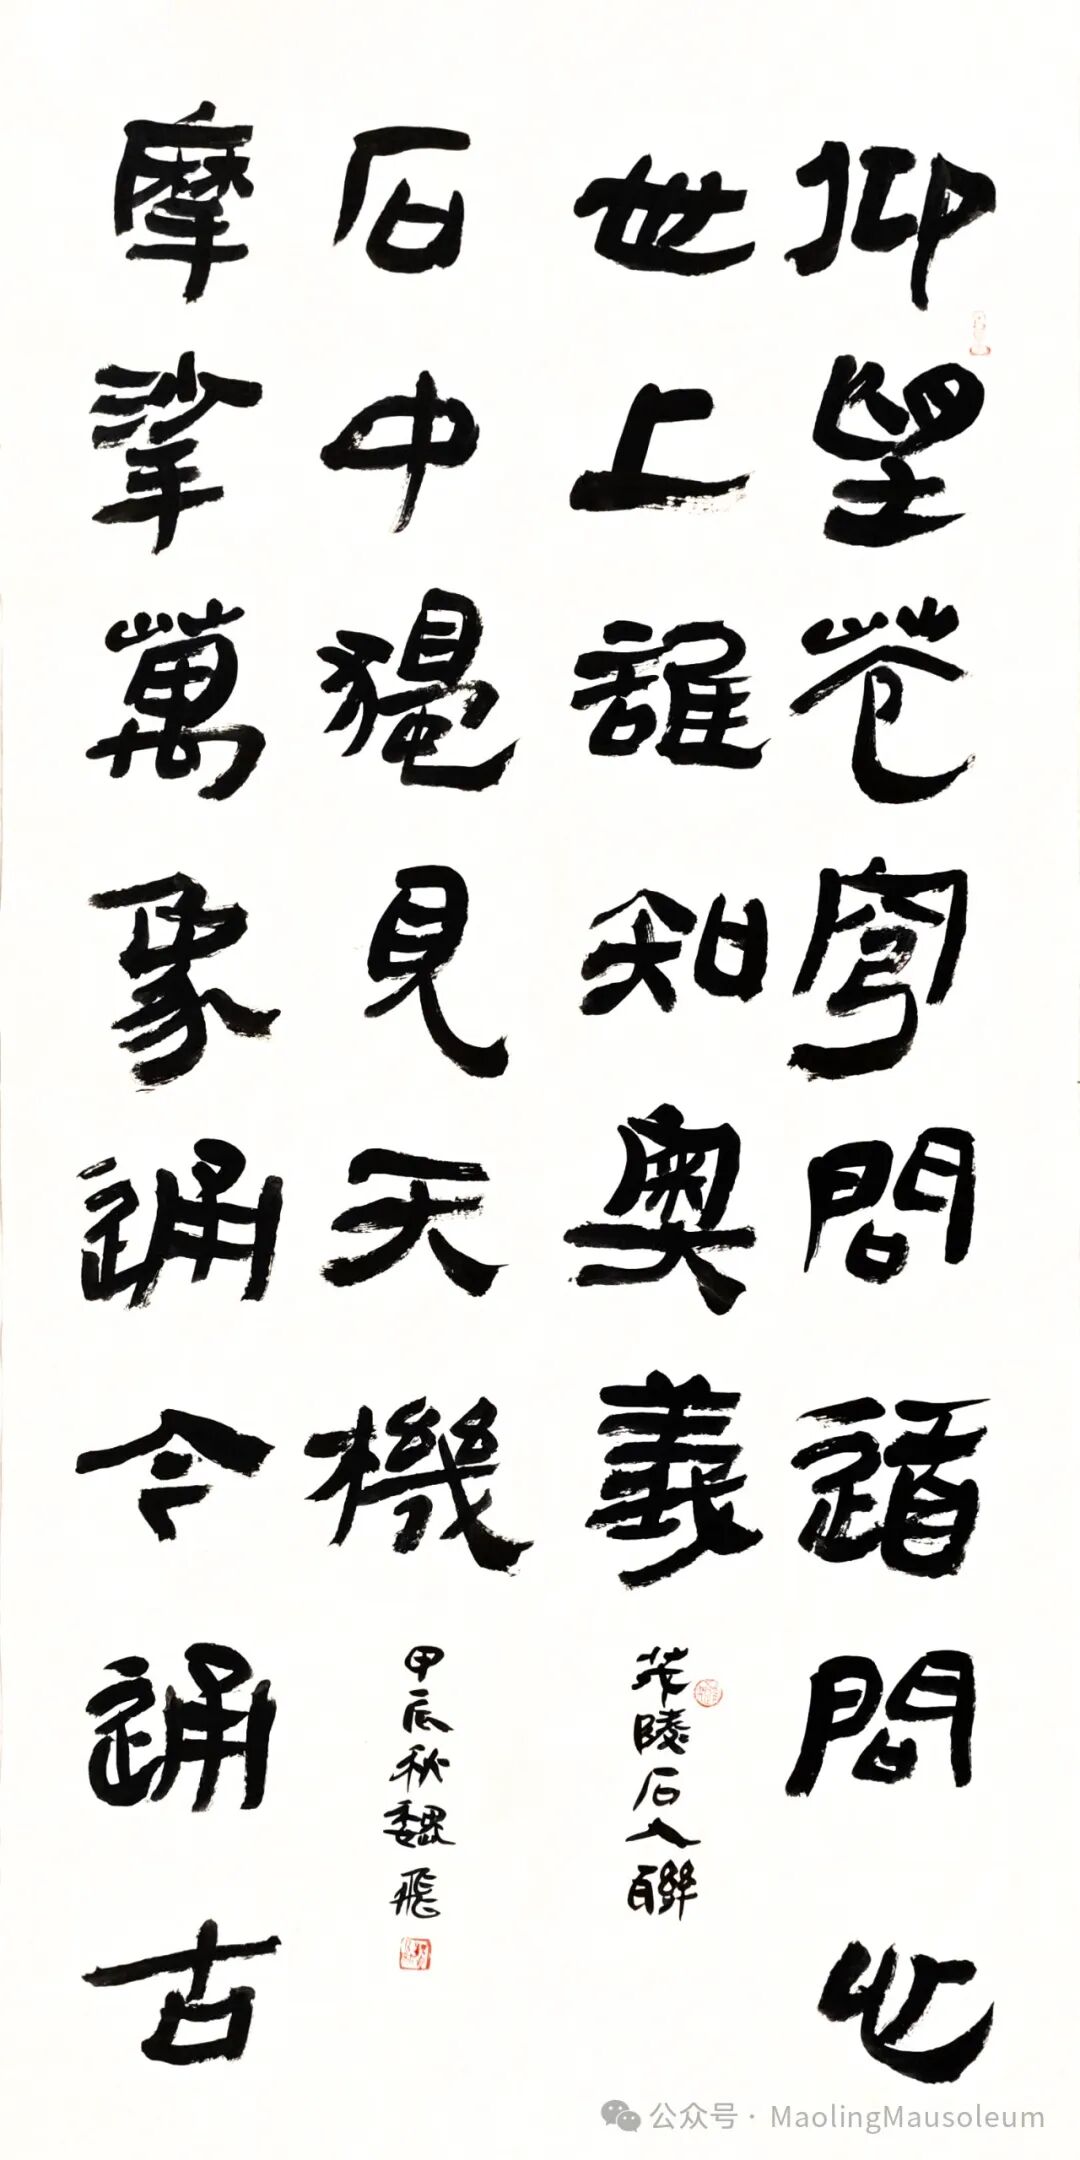 仰望苍穹問道問心
世上誰知奧義
茂陵石人聯
摩挲萬象通今通古
石中獨見天機
甲辰秋魏飛
公众号·MaolingMausoleum